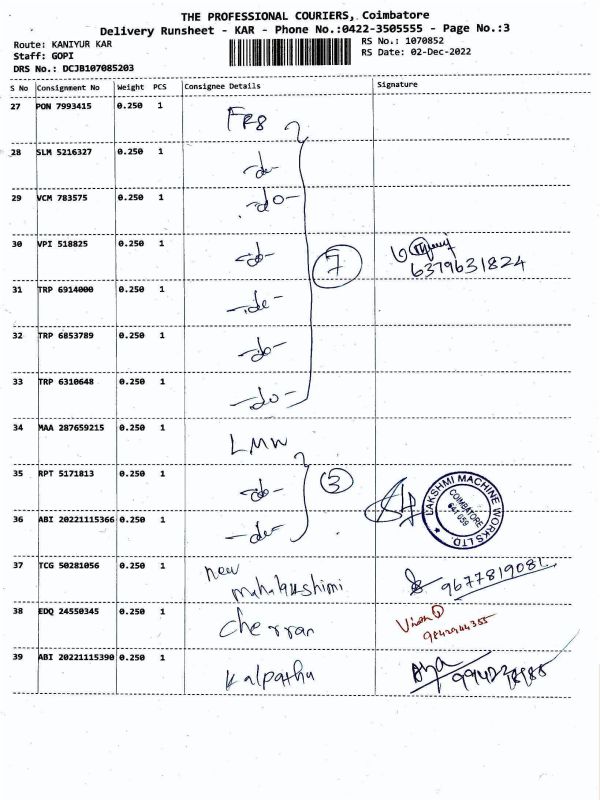 THE PROFESSIONAL COURIERS, Coimbatore
Delivery Runsheet - KAR - Phone No.:0422-3505555 - Page No.:3
Route: KANIYUR KAR
RS No.: 1070852
Staff: GOPI
RS Date: 02-Dec-2022
DRS No.: DCJB107085203
S No Consignment No Weight PCS Consignee Details Signature
27 PON 7993415 0.250 1
28 SLM 5216327 0.250 1 -do-
29 VCM 783575 0.250 1 -do-
30 VPI 518825 0.250 1 -do- 7
6379631824
31 TRP 6914000 0.250 1 -do-
32 TRP 6853789 0.250 1 -do-
33 TRP 6310648 0.250 1 -do-
34 MAA 287659215 0.250 1 LMW
35 RPT 5171813 0.250 1 -do- 3
LAKSHMI MACHINE WORKS LTD.
COIMBATORE
641 059
36 ABI 20221115366 0.250 1 -do-
37 TCG 50281056 0.250 1 new
mahalakshimi 9677819081
38 EDQ 24550345 0.250 1 cherran
39 ABI 20221115390 0.250 1 kalpatha